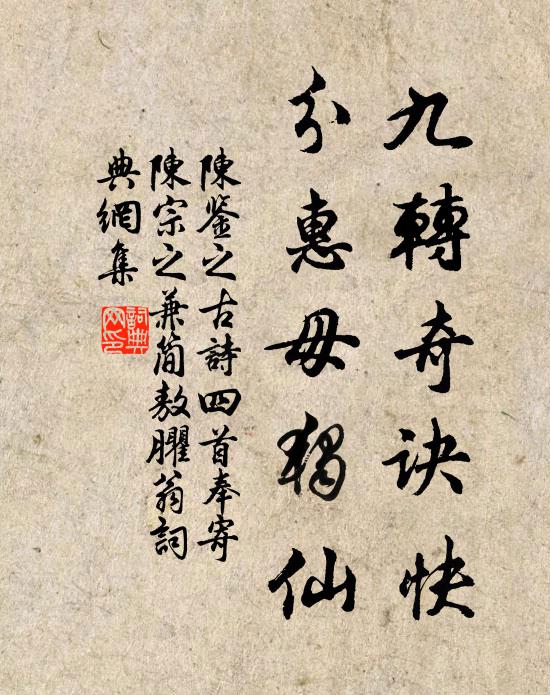 九轉奇訣快
分惠毋獨仙
陳鑒之古詩四首奉寄
陳宗之兼簡敖臞翁詞
典網集
詞典網印